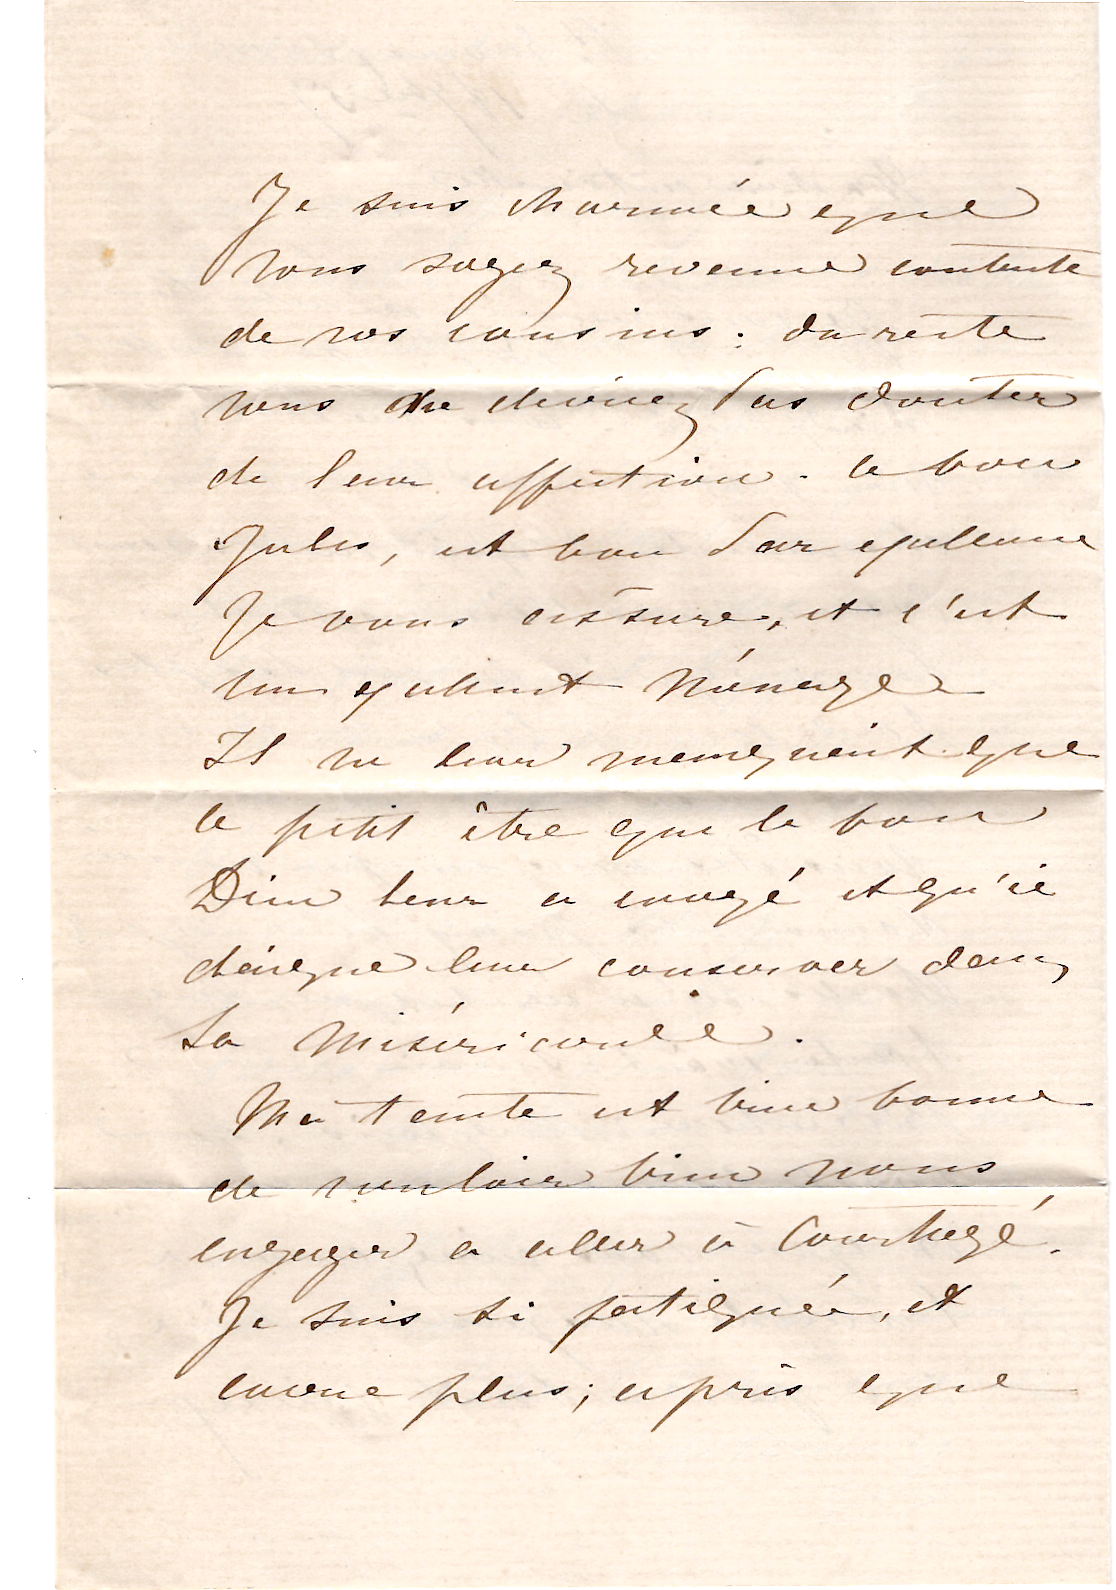 Je suis charmée que
vous soyez revenue contente
de nos cousins : du reste
vous ne deviez pas douter
de leur affection. le bon
Jules, est bon par excellence
Je vous assure, et c'est
un excellent ménage
Il ne leur manquait que
le petit être que le bon
Dieu leur a envoyé et qu'il
daigne leur conserver dans
sa miséricorde.
Ma tante est bien bonne
de vouloir bien nous
engager a aller à
Je suis si fatiguée, et
encore plus; après que